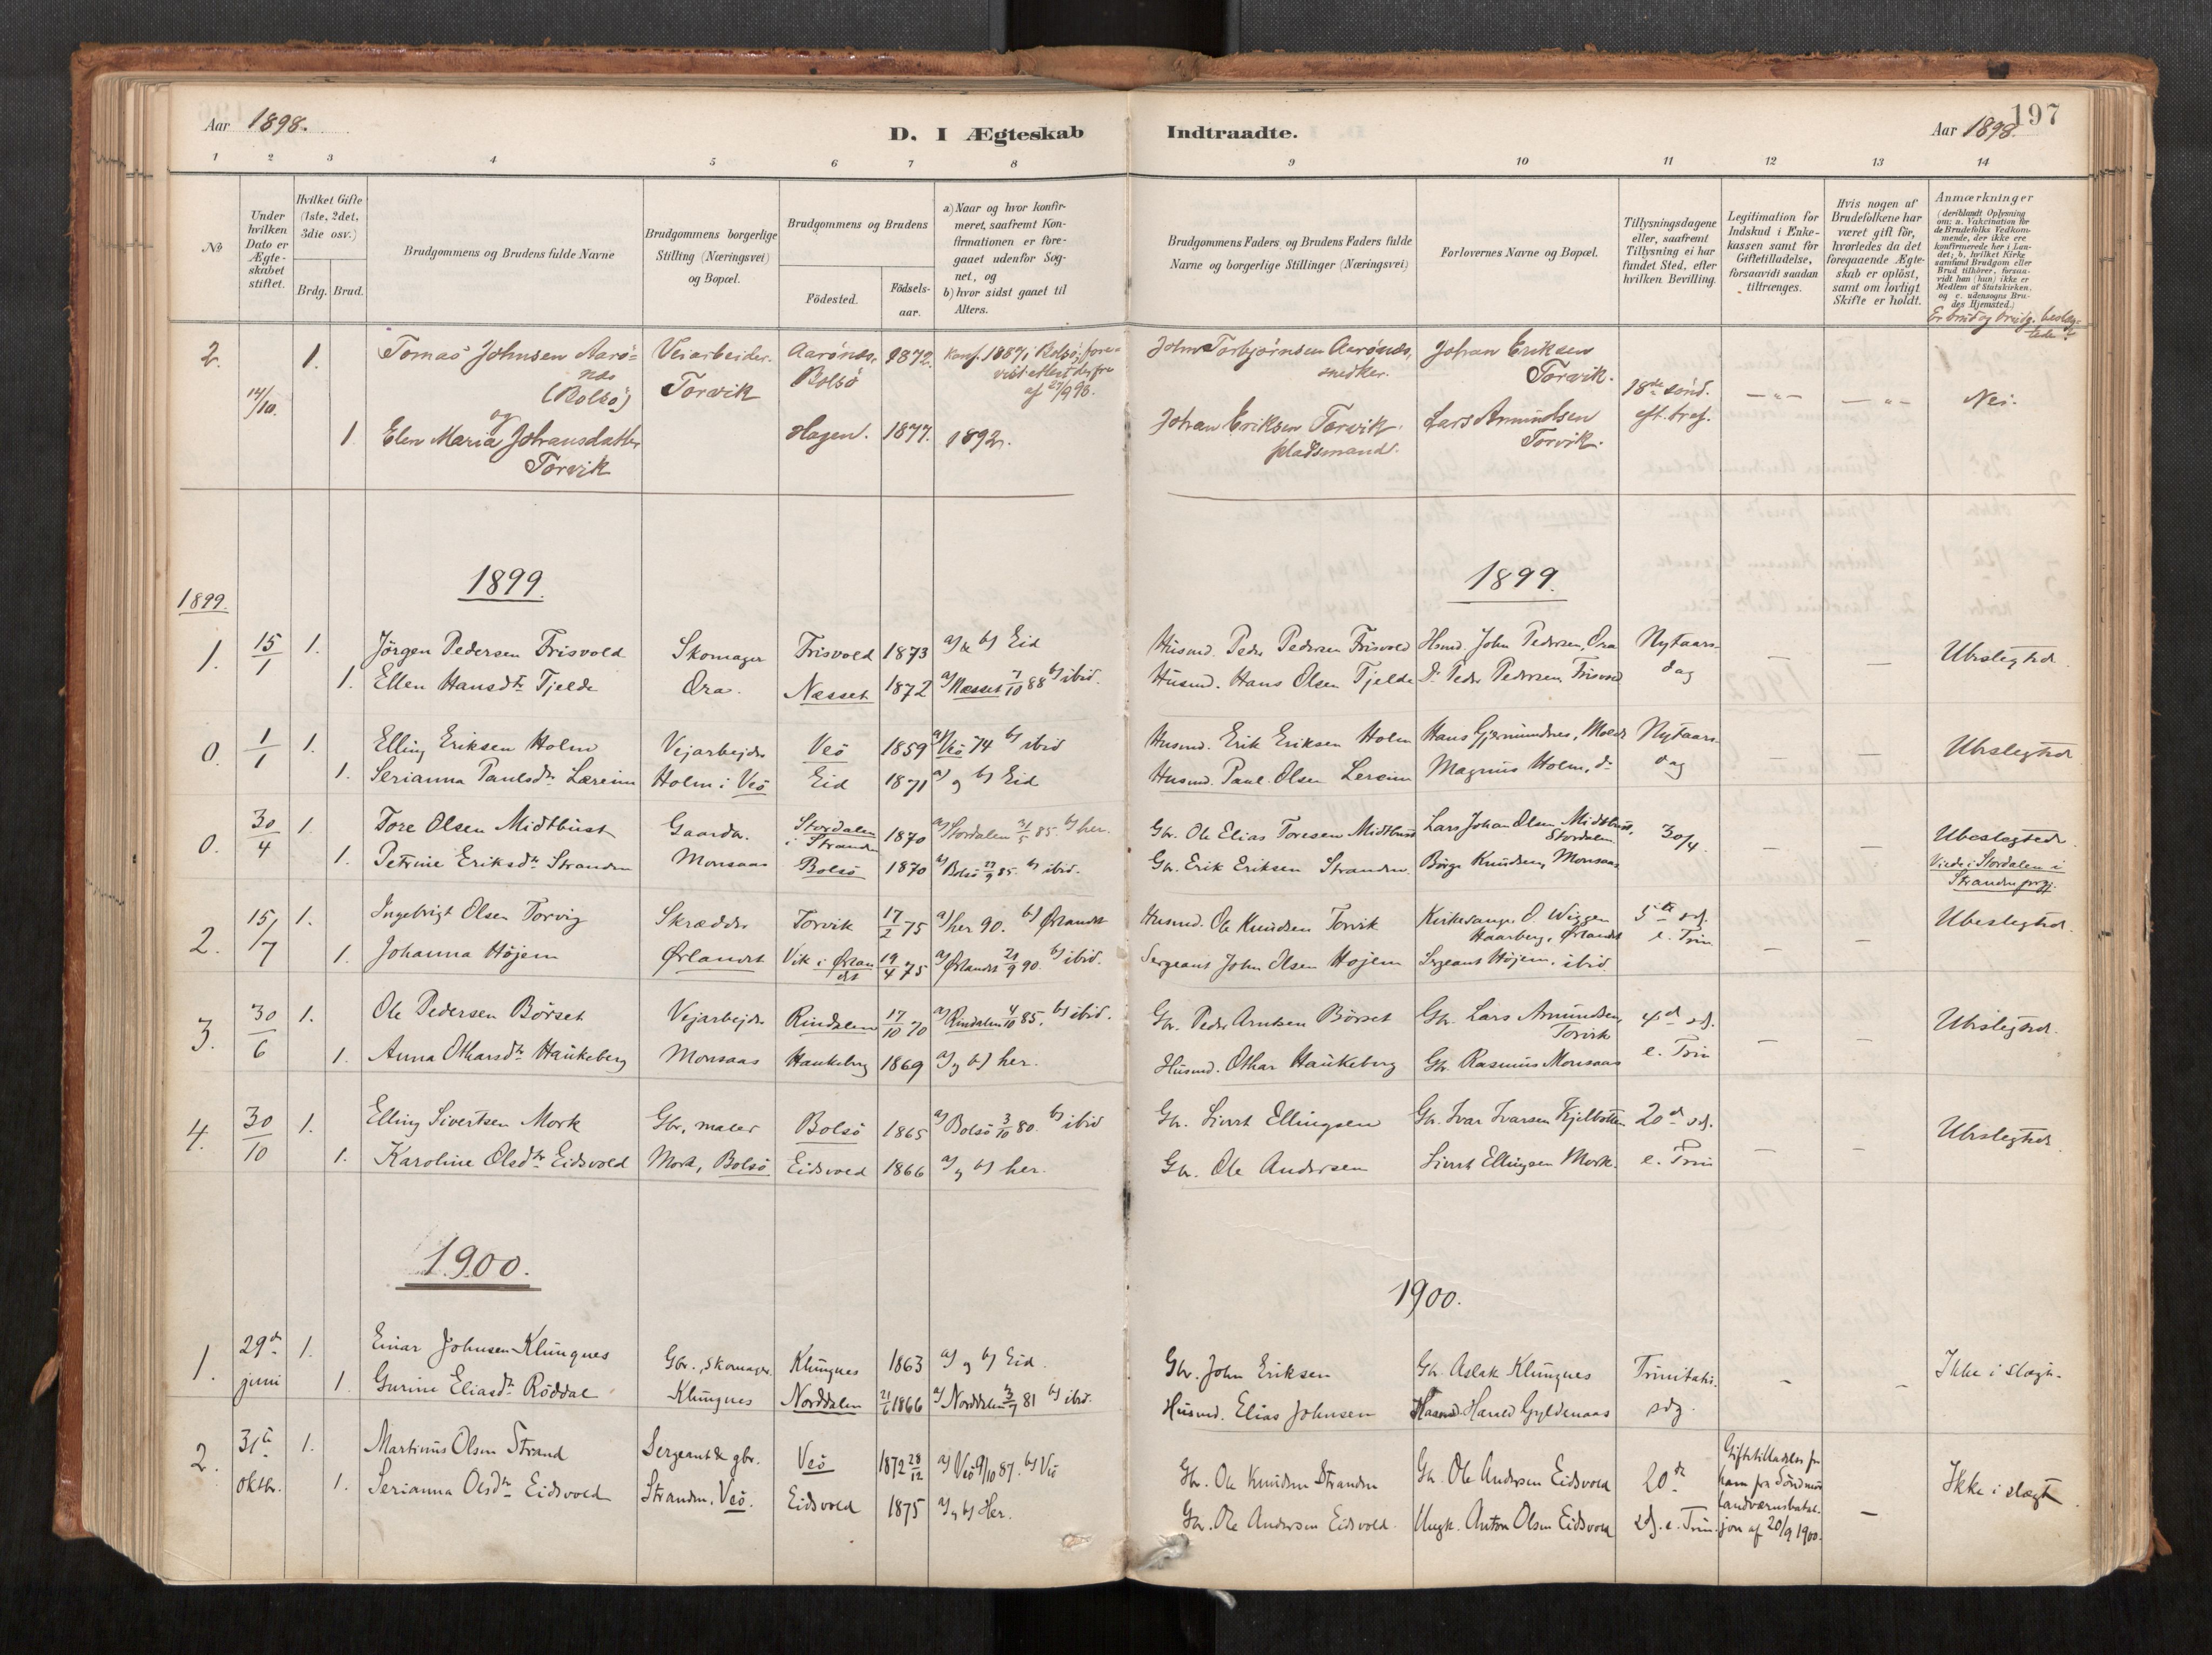 197
Aar 1898.
D. I Ægteskab
Indtraadte.
Aar 1898.
1 2 3 4 5 6 7 8 9 10 11 12 13 14
No
Under hvilken Dato er Ægteskabet stiftet.
Hvilket Gifte (1ste, 2det, 3die osv.)
Brdg. Brud.
Brudgommens og Brudens fulde Navne
Brudgommens borgerlige Stilling (Næringsvei) og Bopæl.
Brudgommens og Brudens
Födested.
Födselsaar.
a) Naar og hvor konfirmeret, saafremt Konfirmationen er foregaaet udenfor Sognet, og
b) hvor sidst gaaet til Alters.
Brudgommens Faders og Brudens Faders fulde Navne og borgerlige Stillinger (Næringsvei)
Forlovernes Navne og Bopæl.
Tillysningsdagene eller, saafremt Tillysning ei har fundet Sted, efter hvilken Bevilling.
Legitimation for Indskud i Enkekassen samt for Giftetilladelse, forsaavidt saadan tiltrænges.
Hvis nogen af Brudefolkene har været gift för, hvorledes da det foregaaende Ægteskab er oplöst, samt om lovligt Skifte er holdt.
Anmærkninger
(deriblandt Oplysning om: a. Vakcination for de Brudefolks Vedkommende, der ikke ere konfirmerede her i Landet; b. hvilket Kirkesamfund Brudgom eller Brud tilhörer, forsaavidt han (hun) ikke er Medlem af Statskirken, og c. udensogns Brudes Hjemsted.)
Er brud og brudg. beslægtede?
2. 14/10. 1. Tomas Johnsen Aarönes (Bolsö) Veiarbeider. Torvik Aarönes, Bolsö 1872. Konf. 1887 i Bolsö, attest af 27/9 98. John Torbjörnsen Aarönes, snedker. Johan Eriksen Torvik. 18de sönd. eft. tref. —„— —„— Nei.
og
1. Elen Maria Johansdatter Torvik Hagen. 1877. 1892. Johan Eriksen Torvik pladsmand. Lars Amundsen Torvik.
1899.
1899.
1899.
1. 15/1 1. Jörgen Pedersen Frisvold Skomager Frisvold 1873 a) & b) Eid Husmd. Peder Pedersen Frisvold Hsmd. John Pedersen, Öra Nytaars- — — Ubeslegtede.
1. Ellen Hansdtr Tjelde Öra. Næsset 1872 a) Næsset 7/10 88 b) ibid. Husmd. Hans Olsen Tjelde Do Peder Pedersen Frisvold dag
0. 1/1 1. Elling Eriksen Holm Vejarbejder Veö 1859 a) Veö 74 b) ibid Husmd. Erik Eriksen Holm Hans Gjermundnes, Molde Nytaars- — — Ubeslegtede
1. Serianna Paulsdtr Læreim Holm i Veö Eid 1871 a) og b) Eid Husmd. Paul Olsen Lereim Magnus Holm, do dag
0. 30/4 1. Tore Olsen Midtbust Gaardbr. Stordalen i Stranden 1870 a) Stordalen 31/5 85. b) her. Gbr. Ole Elias Toresen Midtbust Lars Johan Olsen Midtbust, Stordalen 30/4. — — Ubeslegtede.
1. Petrine Eriksdtr Stranden Monsaas Bolsö 1870 a) Bolsö 27/9 85. b) ibid. Gbr. Erik Eriksen Stranden. Börge Knudsen, Monsaas Viede i Stordalen i Stranden prgj.
2. 15/7 1. Ingebrigt Olsen Torvig Skrædder Torvik 17/2 75 a) her 90. b) Ørlandet Husmd. Ole Knudsen Torvik Kirkesanger O. Wiggen Haarberg, Ørlandet 5te sd. e. Trin — — Ubeslegtede.
1. Johanna Höjem Ørlandet Vik i Ørlandet 19/4 75 a) Ørlandet 21/9 90. b) ibid. Sergeant John Olsen Höjem Sergeant Höjem, ibid.
3. 30/6 1. Ole Pedersen Börset Vejarbejder Rindalen 17/10 70 a) Rindalen 4/10 85. b) ibid. Gbr. Peder Arntsen Börset Gbr. Lars Amundsen, Torvik 4de sd. — — Ubeslegtede.
1. Anna Otharsdtr Haukeberg Monsaas Haukeberg 1869 a) og b) her. Husmd. Othar Haukeberg Gbr. Rasmus Monsaas e. Trin
4. 30/10 1. Elling Sivertsen Mork Gbr., maler Bolsö 1865 a) Bolsö 3/10 80. b) ibid Gbr. Sivert Ellingsen Gbr. Ivar Ivarsen Kjelbotten 20de sd. — — Ubeslegtede.
1. Karoline Olsdtr Eidsvold Mork, Bolsö Eidsvold 1866 a) og b) her. Gbr. Ole Andersen Sivert Ellingsen Mork. e. Trin
1900.
1900.
1. 29de juni 1. Einar Johnsen Klungnes Gbr., skomager. Klungnes 1863 a) og b) Eid. Gbr. John Eriksen Gbr. Aslak Klungnes Trinitatis- - - Ikke i slægt.
1. Gurine Eliasdtr Röddal Klungnes Norddalen 21/6 1866 a) Norddalen 3/7 81 b) ibid. Husmd. Elias Johnsen Harald Gyldenaas sdg.
2. 31te oktbr. 1. Martinus Olsen Strand Sergeant & gbr. Veö 1872 28/12 a) Veö 9/10 87. b) Veö Gbr. Ole Knudsen Stranden Gbr. Ole Andersen Eidsvold 20de Giftetilladelse for ham fra Söndmör landværnsbataljon af 20/9 1900. — Ikke i slægt.
1. Serianna Olsdtr Eidsvold Stranden, Veö. Eidsvold 1875 a) og b) Her. Gbr. Ole Andersen Eidsvold. Ungk. Anton Olsen Eidsvold sd. e. Trin.